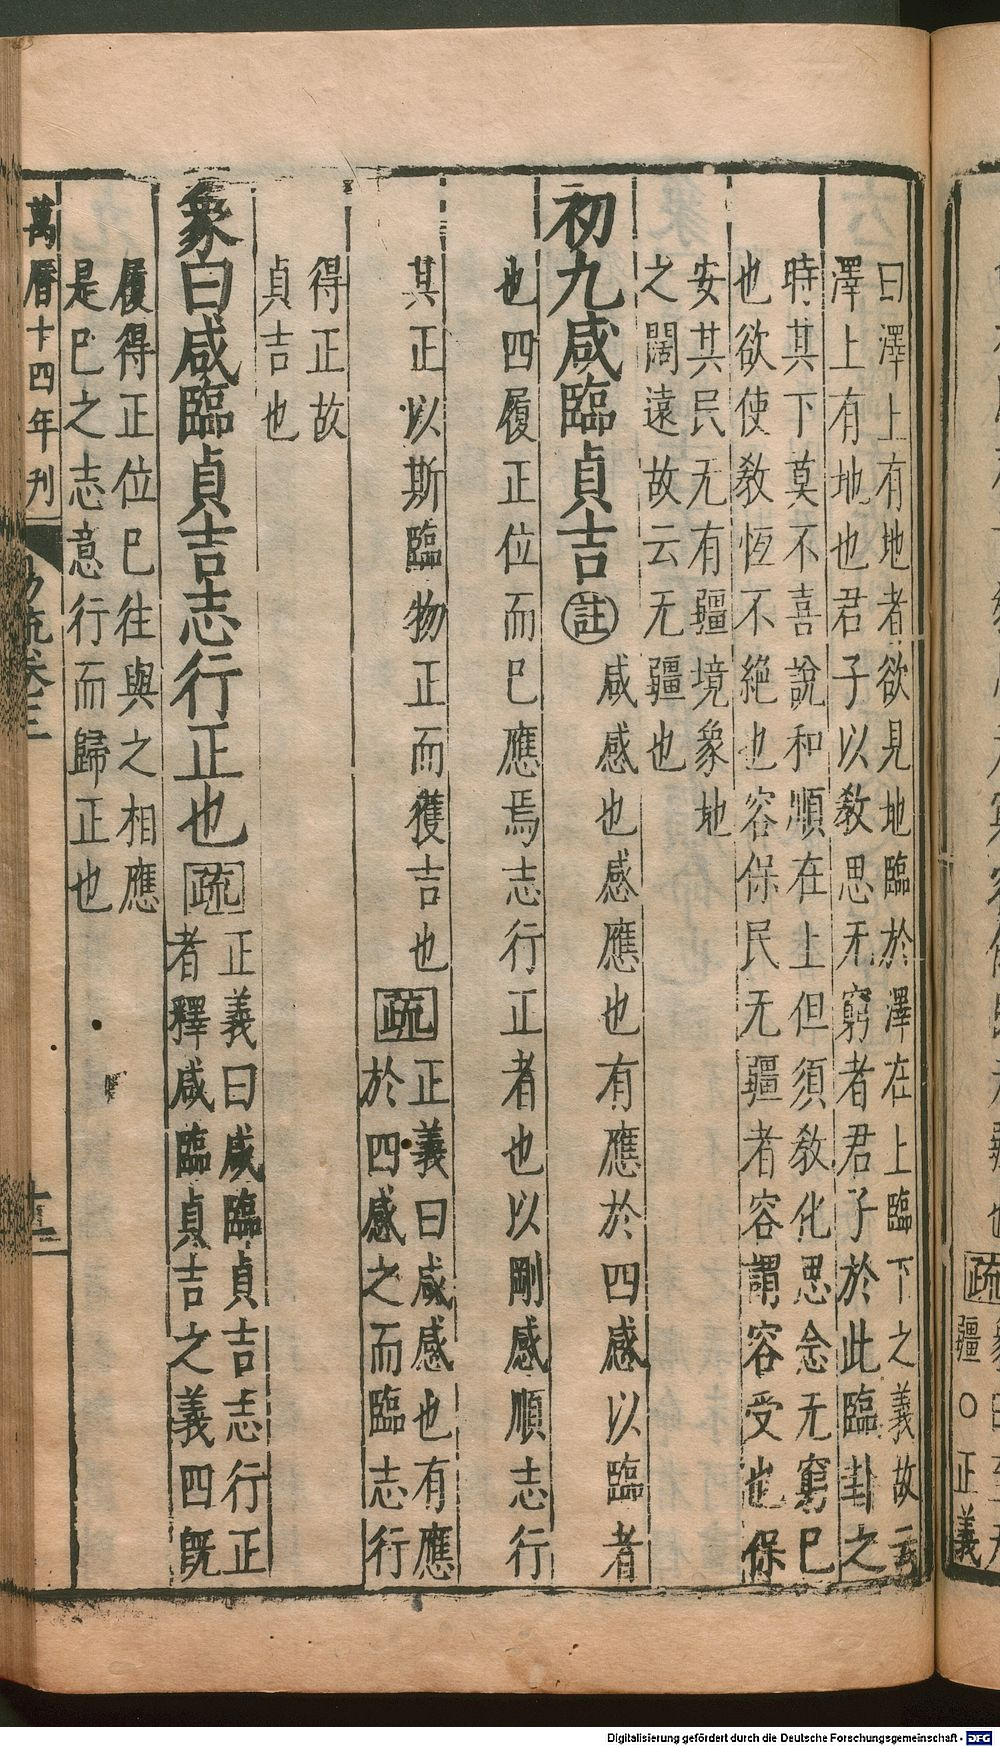 曰澤上有地者欲見地臨於澤在上臨下之義故云
澤上有地也君子以敎思无窮者君子於此臨卦之
時其下莫不喜說和順在上但須敎化思念无窮巳
也欲使敎恆不絶也容保民无疆者容謂容受也保
安其民无有疆境象地
之闊遠故云无疆也
初九咸臨貞吉註
咸感也感應也有應於四感以臨者
也四履正位而巳應焉志行正者也以剛感順志行
其正以斯臨物正而獲吉也疏
正義曰咸感也有應
於四感之而臨志行
得正故
貞吉也
象曰咸臨貞吉志行正也疏
正義曰咸臨貞吉志行正
者釋咸臨貞吉之義四旣
履得正位巳往與之相應
是巳之志意行而歸正也
萬曆十四年刊
卷三
疆○正義
Digitalisierung gefördert durch die Deutsche Forschungsgemeinschaft - DFG